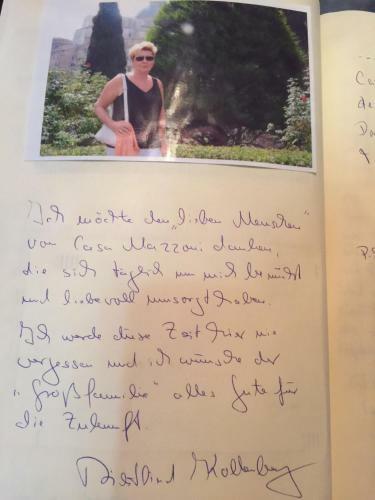 Ich möchte den „lieben Menschen"
von Casa Mazzoni danken,
die sich täglich um mich bemüht
und liebevoll umsorgt haben.
Ich werde diese Zeit hier nie
vergessen und ich wünsche der
„Großfamilie" alles Gute für
die Zukunft.